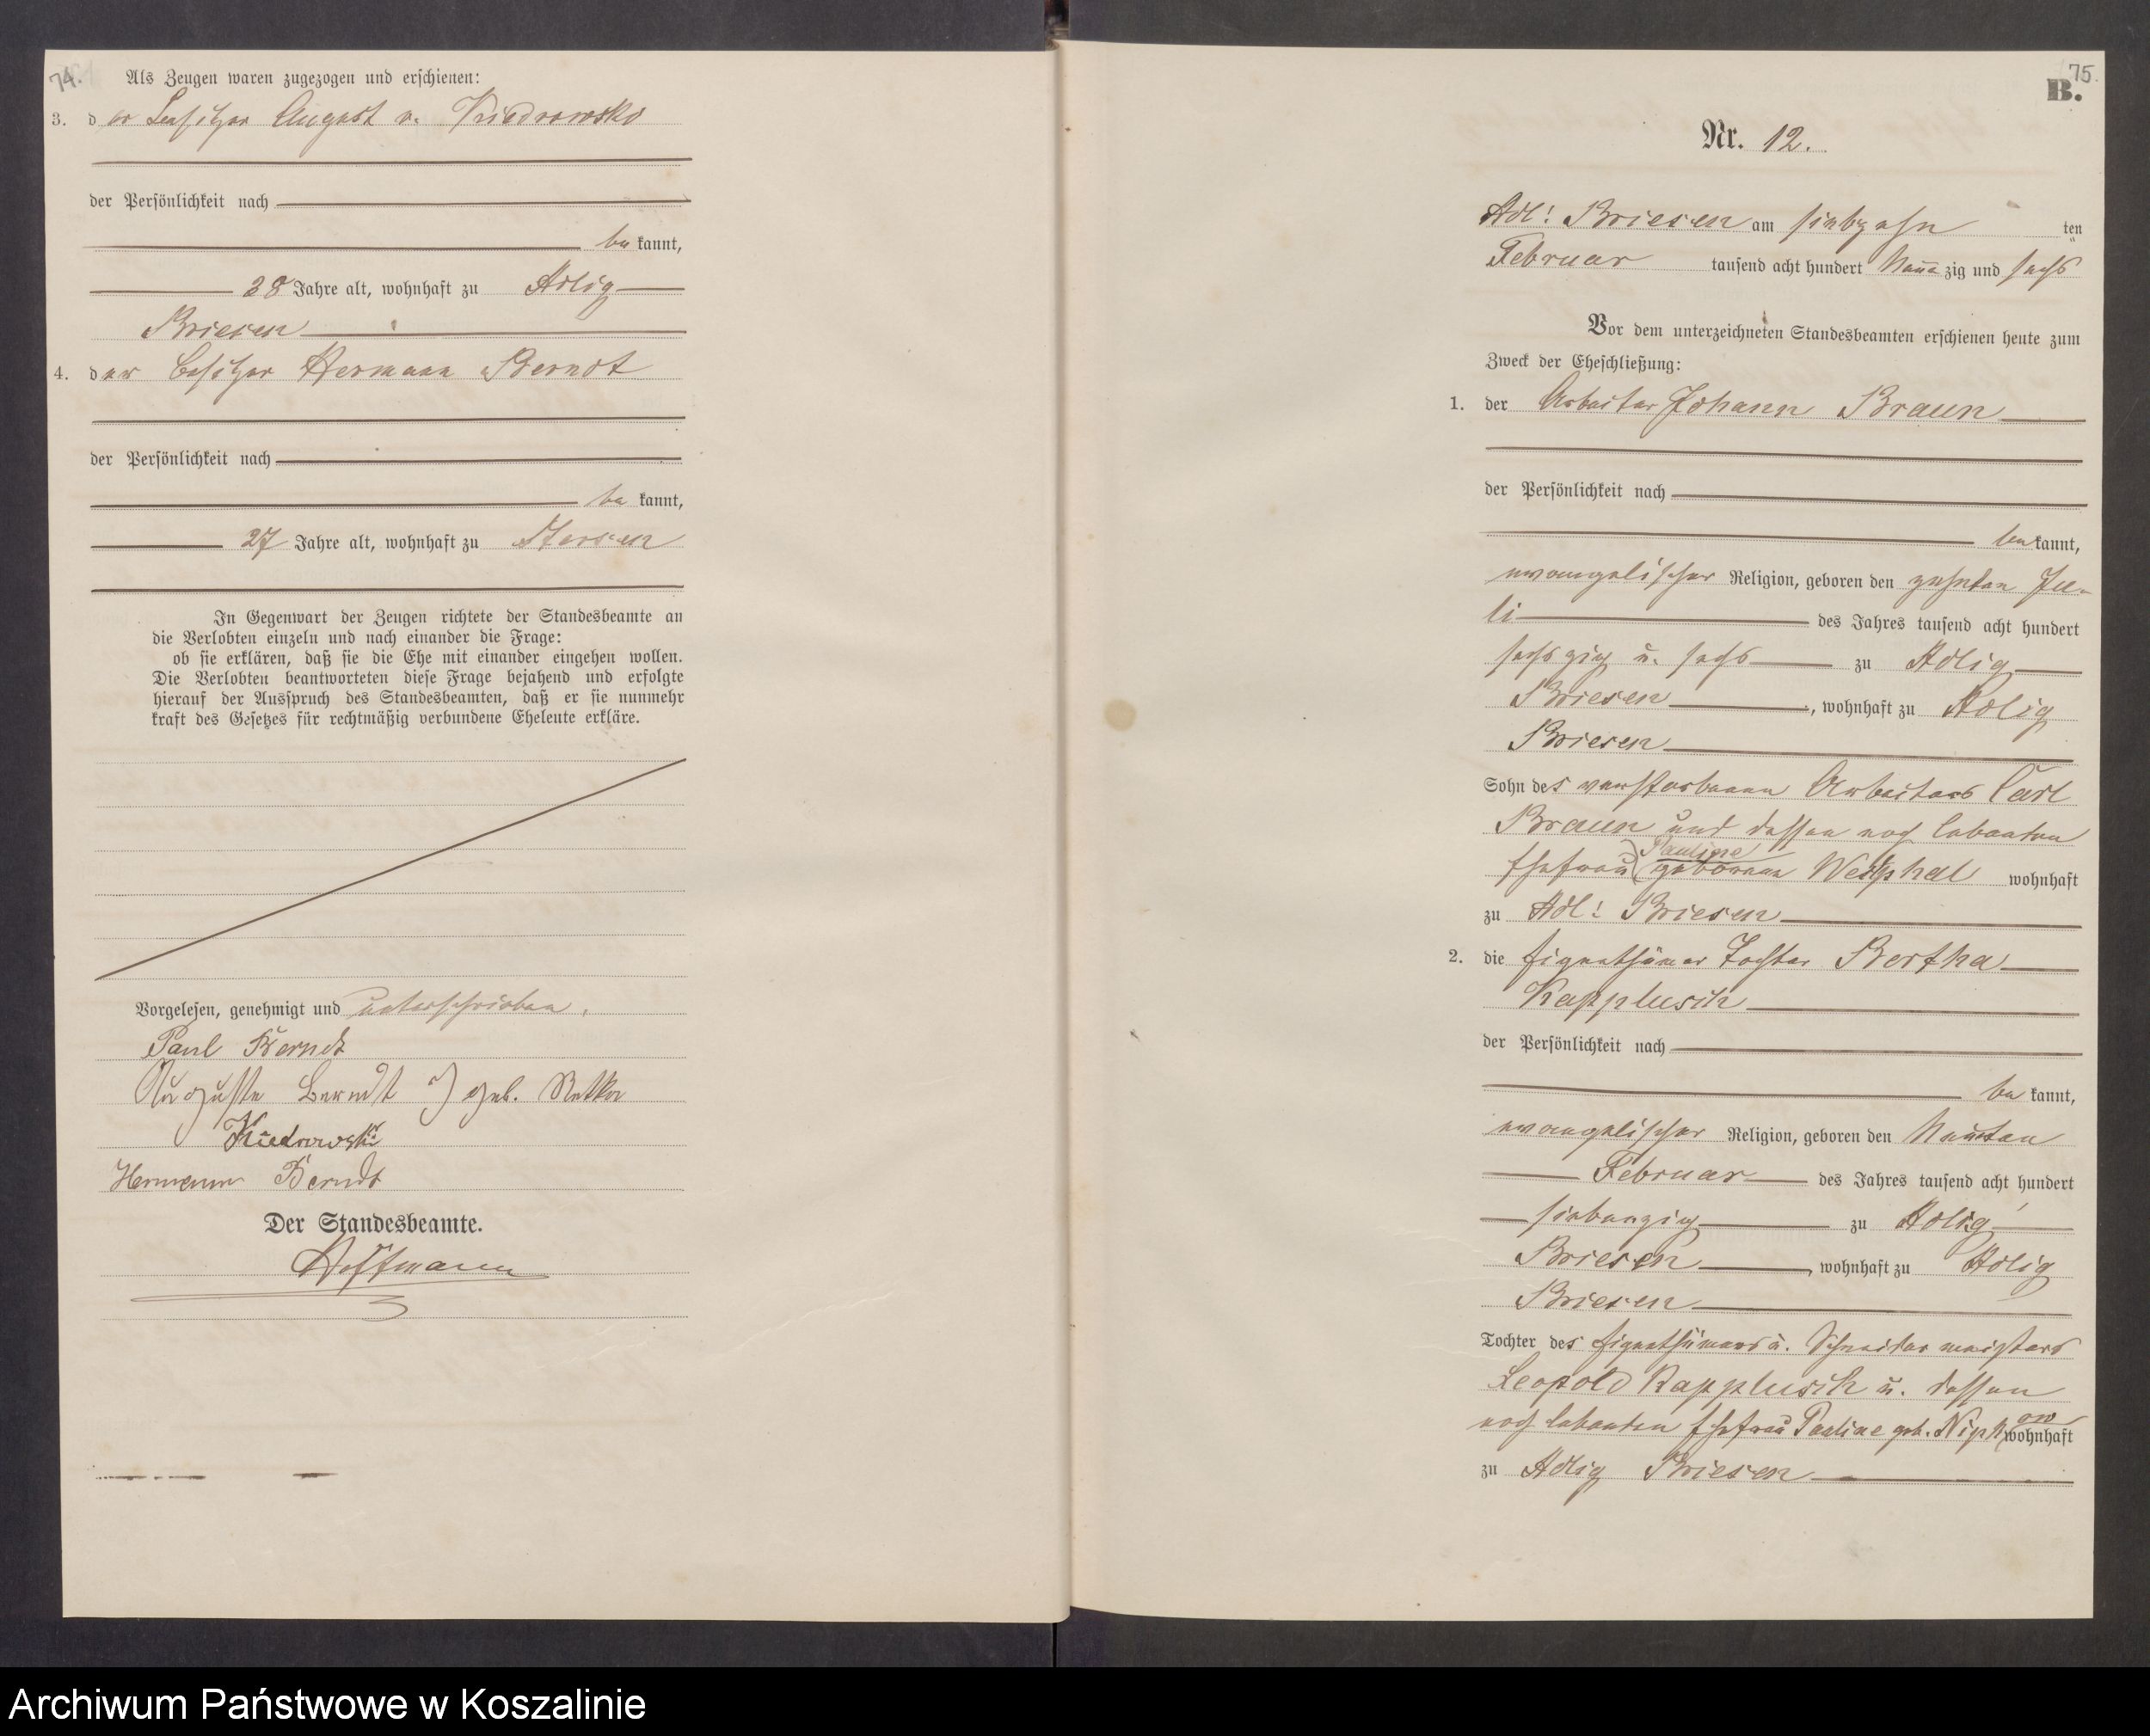 74.
Als Zeugen waren zugezogen und erschienen:
3. der Besitzer August v. Kiedrowski
der Persönlichkeit nach
bekannt,
28 Jahre alt, wohnhaft zu Adlig
Briesen
4. der Besitzer Hermann Berndt
der Persönlichkeit nach
bekannt,
27 Jahre alt, wohnhaft zu
In Gegenwart der Zeugen richtete der Standesbeamte an
die Verlobten einzeln und nach einander die Frage:
ob sie erklären, daß sie die Ehe mit einander eingehen wollen.
Die Verlobten beantworteten diese Frage bejahend und erfolgte
hierauf der Ausspruch des Standesbeamten, daß er sie nunmehr
kraft des Gesetzes für rechtmäßig verbundene Eheleute erkläre.
Vorgelesen, genehmigt und unterschrieben.
Paul Berndt
Auguste Berndt geb.
Kiedrowski
Hermann Berndt
Der Standesbeamte.
Hoffmann
75.
B.
Nr. 12.
Adl: Briesen am siebzehnten
Februar tausend acht hundert Neunzig und sechs
Vor dem unterzeichneten Standesbeamten erschienen heute zum
Zweck der Eheschließung:
1. der Arbeiter Johann Braun
der Persönlichkeit nach
bekannt,
evangelischer Religion, geboren den zehnten Ju-
li des Jahres tausend acht hundert
sechszig u. sechs zu Adlig
Briesen, wohnhaft zu Adlig
Briesen
Sohn des verstorbenen Arbeiters Carl
Braun und dessen noch lebenden
Pauline
Ehefrau geborenen Westphal wohnhaft
zu Adl: Briesen
2. die Eigenthümer Tochter Bertha
Kapplusch
der Persönlichkeit nach
bekannt,
evangelischer Religion, geboren den Neunten
Februar des Jahres tausend acht hundert
siebenzig zu Adlig
Briesen, wohnhaft zu Adlig
Briesen
Tochter des Eigenthümers u. Schneidermeisters
Leopold Kapplusch u. dessen
noch lebenden Ehefrau Pauline geb. Nipkow wohnhaft
zu Adlig Briesen
Archiwum Państwowe w Koszalinie